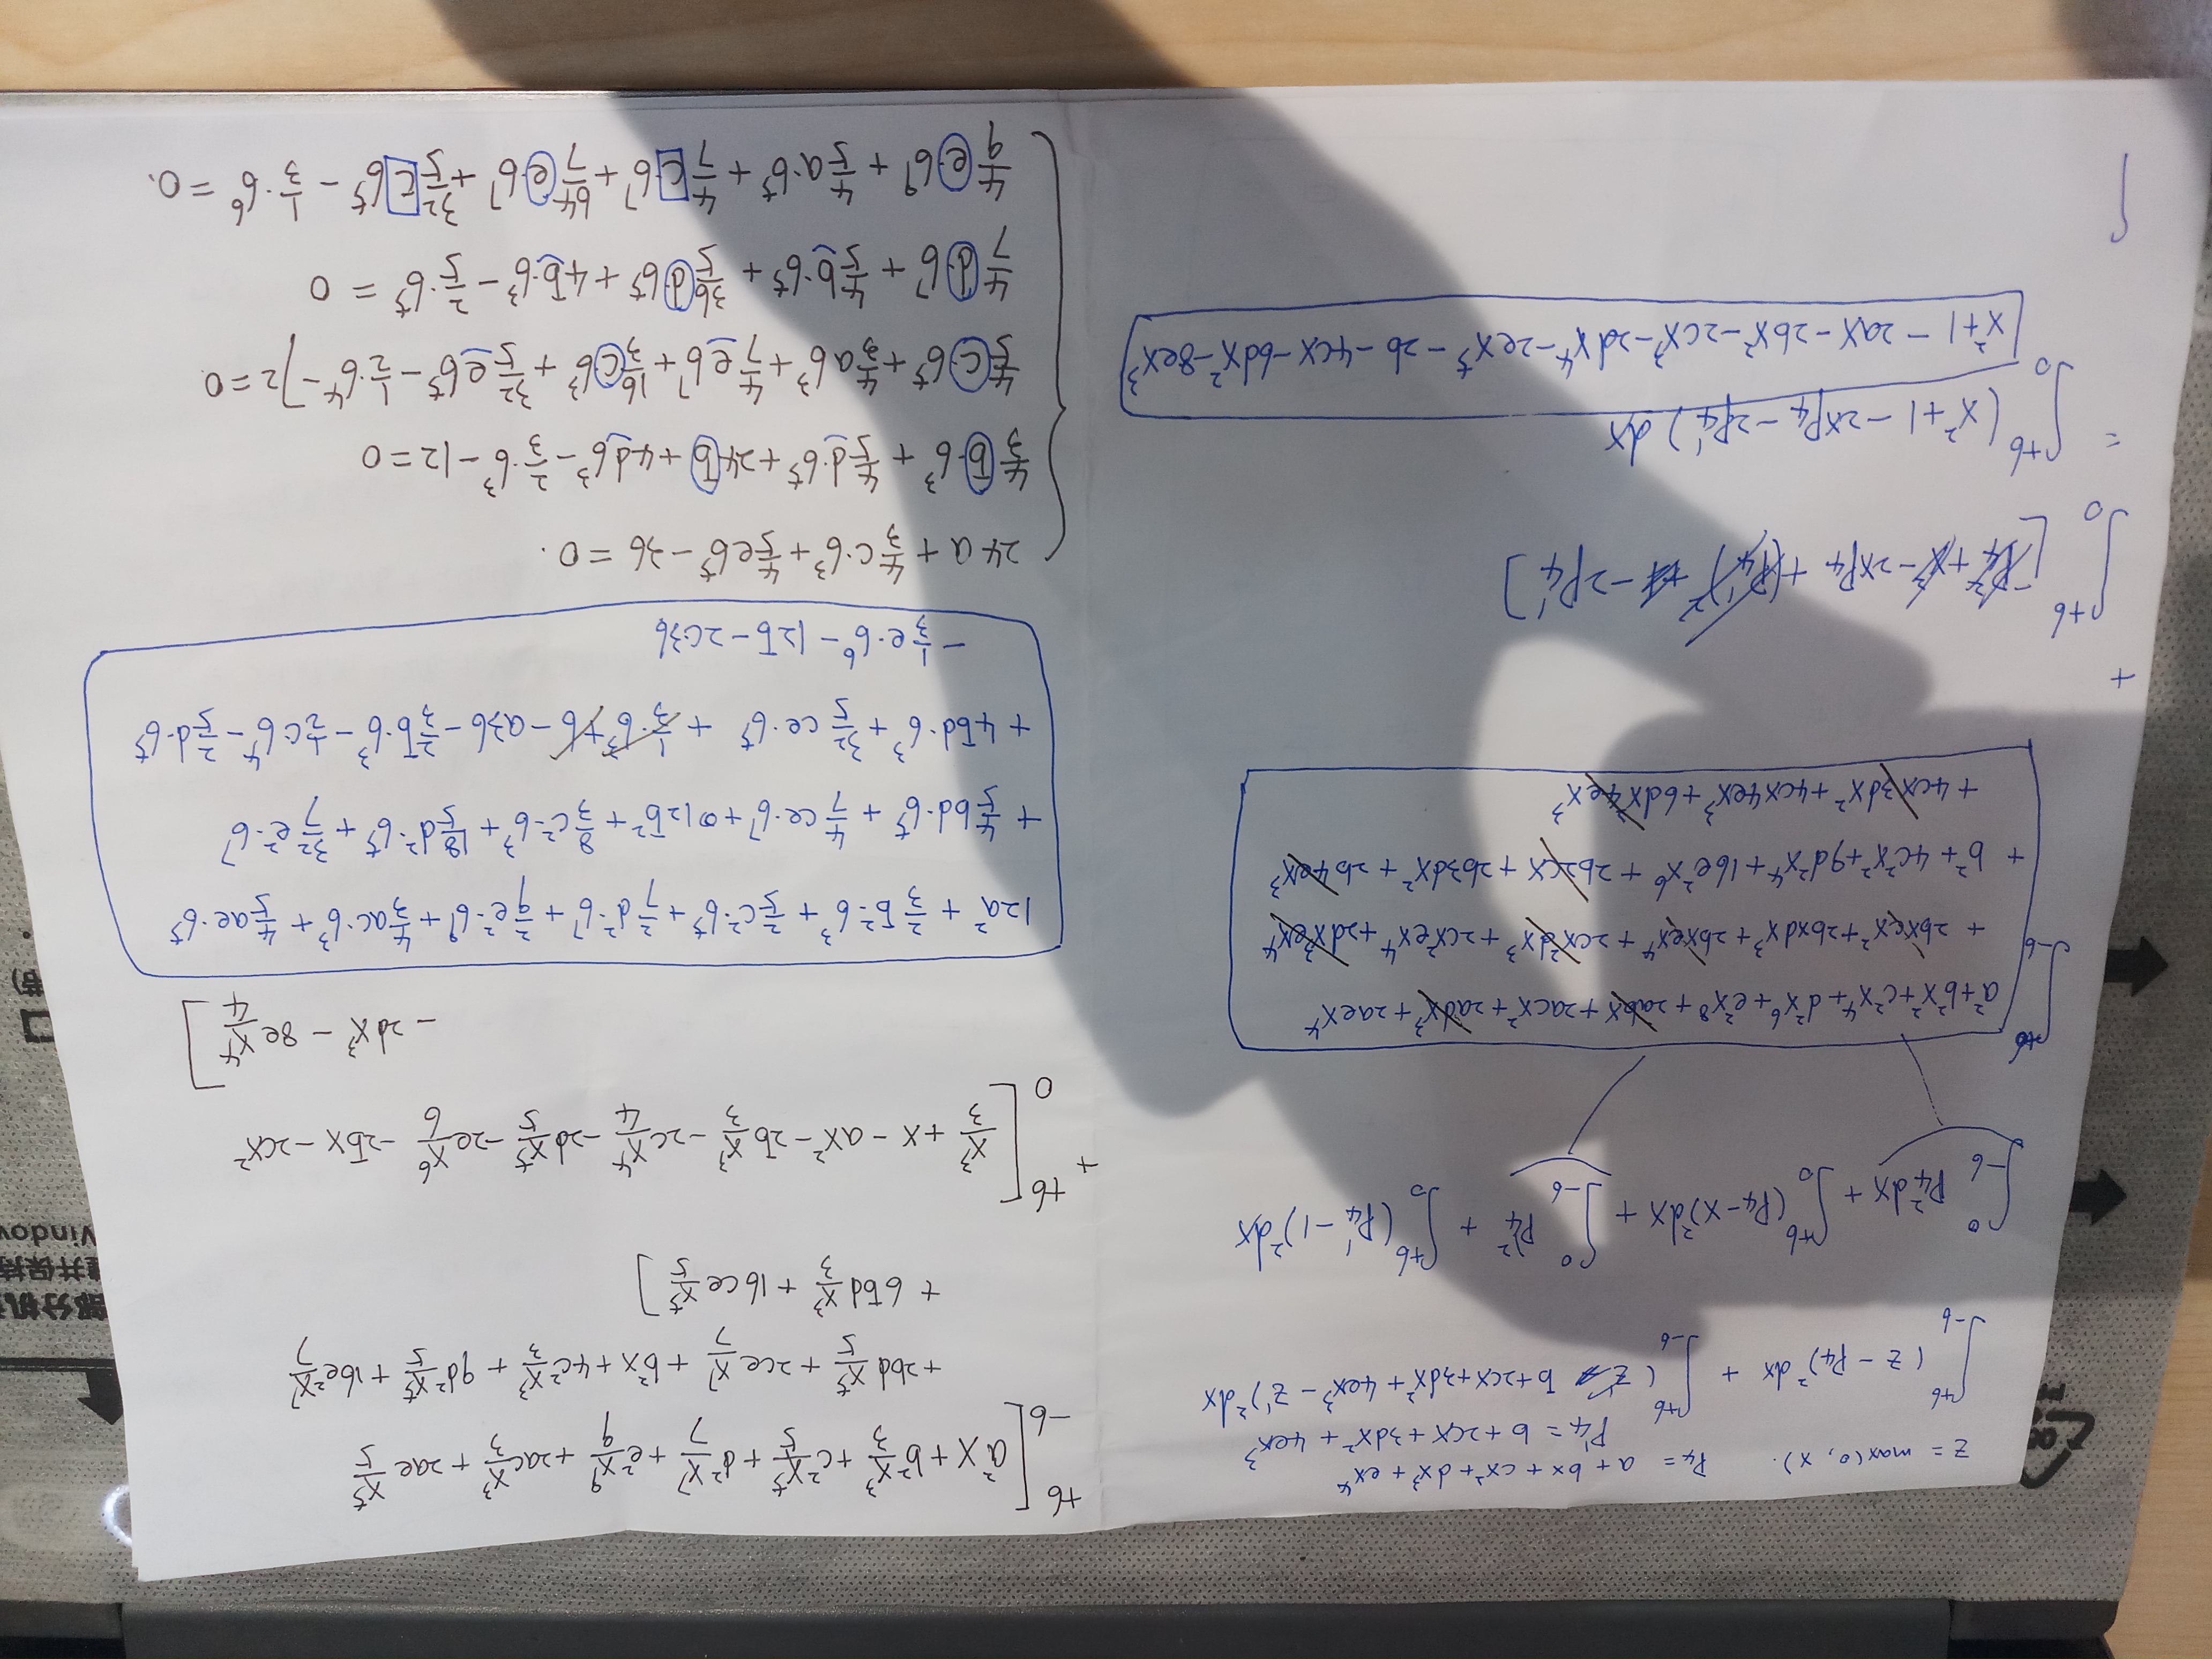 z = max(0, x).   P₄ = a + bx + cx² + dx³ + ex⁴
P₄' = b + 2cx + 3dx² + 4ex³
∫₋₆⁺⁶ (z - P₄)² dx + ∫₋₆⁺⁶ ( b + 2cx + 3dx² + 4ex³ - z')² dx
∫₋₆⁰ P₄² dx + ∫₀⁺⁶ (P₄ - x)² dx + ∫₋₆⁰ P₄'² + ∫₀⁺⁶ (P₄' - 1)² dx
∫₋₆⁺⁶ a² + b²x² + c²x⁴ + d²x⁶ + e²x⁸ + 2abx + 2acx² + 2adx³ + 2aex⁴
+ 2bxcx² + 2bxdx³ + 2bxex⁴ + 2cx²dx³ + 2cx²ex⁴ + 2dx³ex⁴
+ b² + 4c²x² + 9d²x⁴ + 16e²x⁶ + 2b2cx + 2b3dx² + 2b4ex³
+ 4cx3dx² + 4cx4ex³ + 6dx²4ex³
+
∫₀⁺⁶ [P₄² + x² - 2xP₄ + (P₄')² + 1 - 2P₄']
= ∫₀⁺⁶ (x² + 1 - 2xP₄ - 2P₄') dx
x² + 1 - 2ax - 2bx² - 2cx³ - 2dx⁴ - 2ex⁵ - 2b - 4cx - 6dx² - 8ex³
∫
+6 -6 [a²x + b² x³/3 + c² x⁵/5 + d² x⁷/7 + e² x⁹/9 + 2ac x³/3 + 2ae x⁵/5
+ 2bd x⁵/5 + 2ce x⁷/7 + b²x + 4c² x³/3 + 9d² x⁵/5 + 16e² x⁷/7
+ 6bd x³/3 + 16ce x⁵/5]
+ +6 0 [x³/3 + x - ax² - 2b x³/3 - 2c x⁴/4 - 2d x⁵/5 - 2e x⁶/6 - 2bx - 2cx²
- 2dx³ - 8e x⁴/4]
12a² + 2/3 b²·6³ + 2/5 c²·6⁵ + 2/7 d²·6⁷ + 2/9 e²·6⁹ + 4/3 ac·6³ + 4/5 ae·6⁵
+ 4/5 bd·6⁵ + 4/7 ce·6⁷ + 12b² + 8/3 c²·6³ + 18/5 d²·6⁵ + 32/7 e²·6⁷
+ 4bd·6³ + 32/5 ce·6⁵ + 1/3·6³ + 6 - a36 - 2/3 b·6³ - 1/2 c·6⁴ - 2/5 d·6⁵
- 1/3 e·6⁶ - 12b - 2c·36
24a + 4/3 c·6³ + 4/5 e6⁵ - 36 = 0.
4/3 b·6³ + 4/5 d·6⁵ + 24b + 4d6³ - 2/3·6³ - 12 = 0
4/5 c·6⁵ + 4/3 a6³ + 4/7 e6⁷ + 16/3 c6³ + 32/5 e6⁵ - 1/2·6⁴ - 72 = 0.
4/7 d·6⁷ + 4/5 b·6⁵ + 36/5 d6⁵ + 4b·6³ - 2/5·6⁵ = 0
4/9 e·6⁹ + 4/5 a·6⁵ + 4/7 c·6⁷ + 64/7 e·6⁷ + 32/5 c6⁵ - 1/3·6⁶ = 0.
部分机
并保持
Window